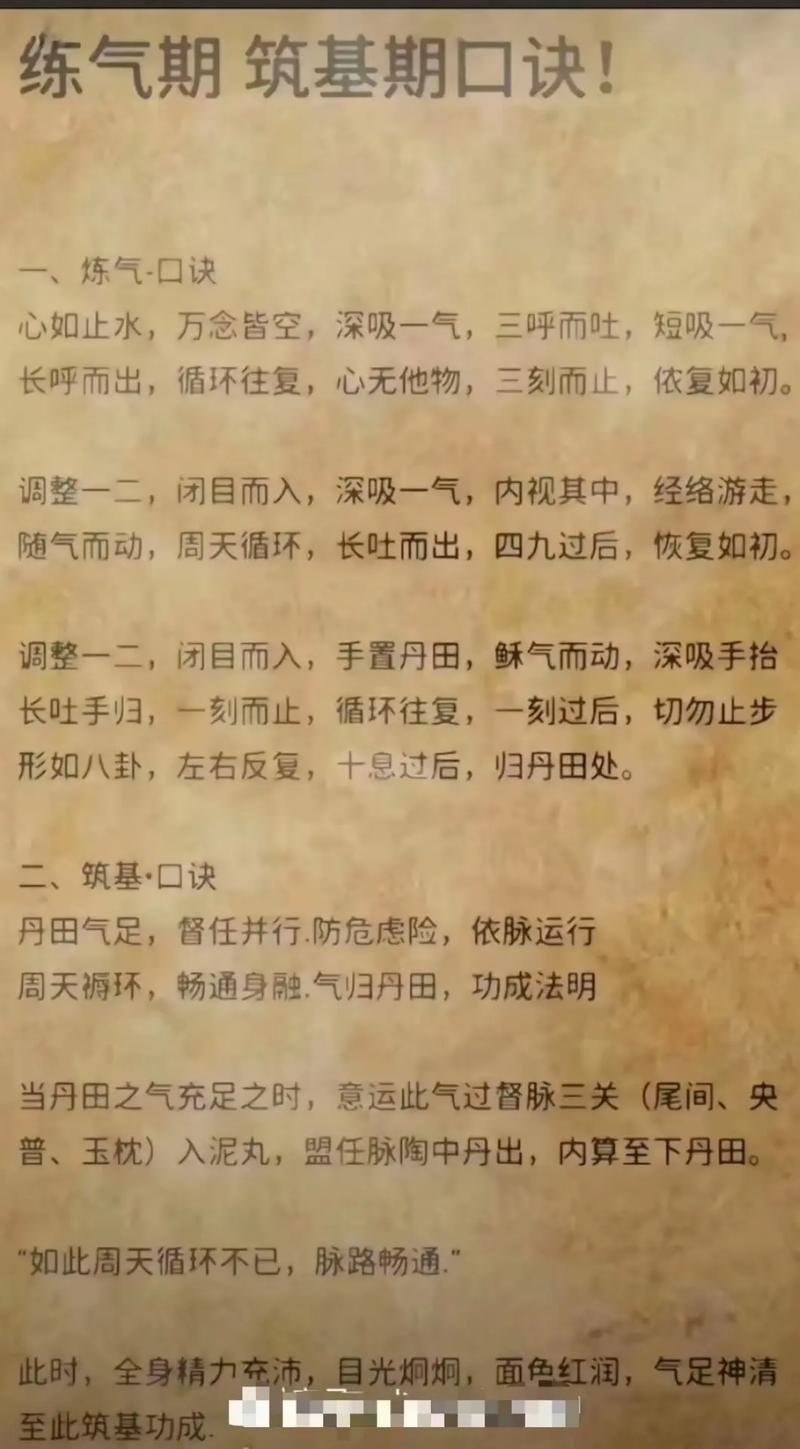 练气期 筑基期口诀！
一、炼气-口诀
心如止水，万念皆空，深吸一气，三呼而吐，短吸一气，
长呼而出，循环往复，心无他物，三刻而止，依复如初。
调整一二，闭目而入，深吸一气，内视其中，经络游走，
随气而动，周天循环，长吐而出，四九过后，恢复如初。
调整一二，闭目而入，手置丹田，稣气而动，深吸手抬
长吐手归，一刻而止，循环往复，一刻过后，切勿止步
形如八卦，左右反复，十息过后，归丹田处。
二、筑基·口诀
丹田气足，督任并行.防危虑险，依脉运行
周天褥环，畅通身融.气归丹田，功成法明
当丹田之气充足之时，意运此气过督脉三关（尾间、央
普、玉枕）入泥丸，盟任脉陶中丹出，内算至下丹田。
“如此周天循环不已，脉路畅通.”
此时，全身精力充沛，目光炯炯，面色红润，气足神清
至此筑基功成.